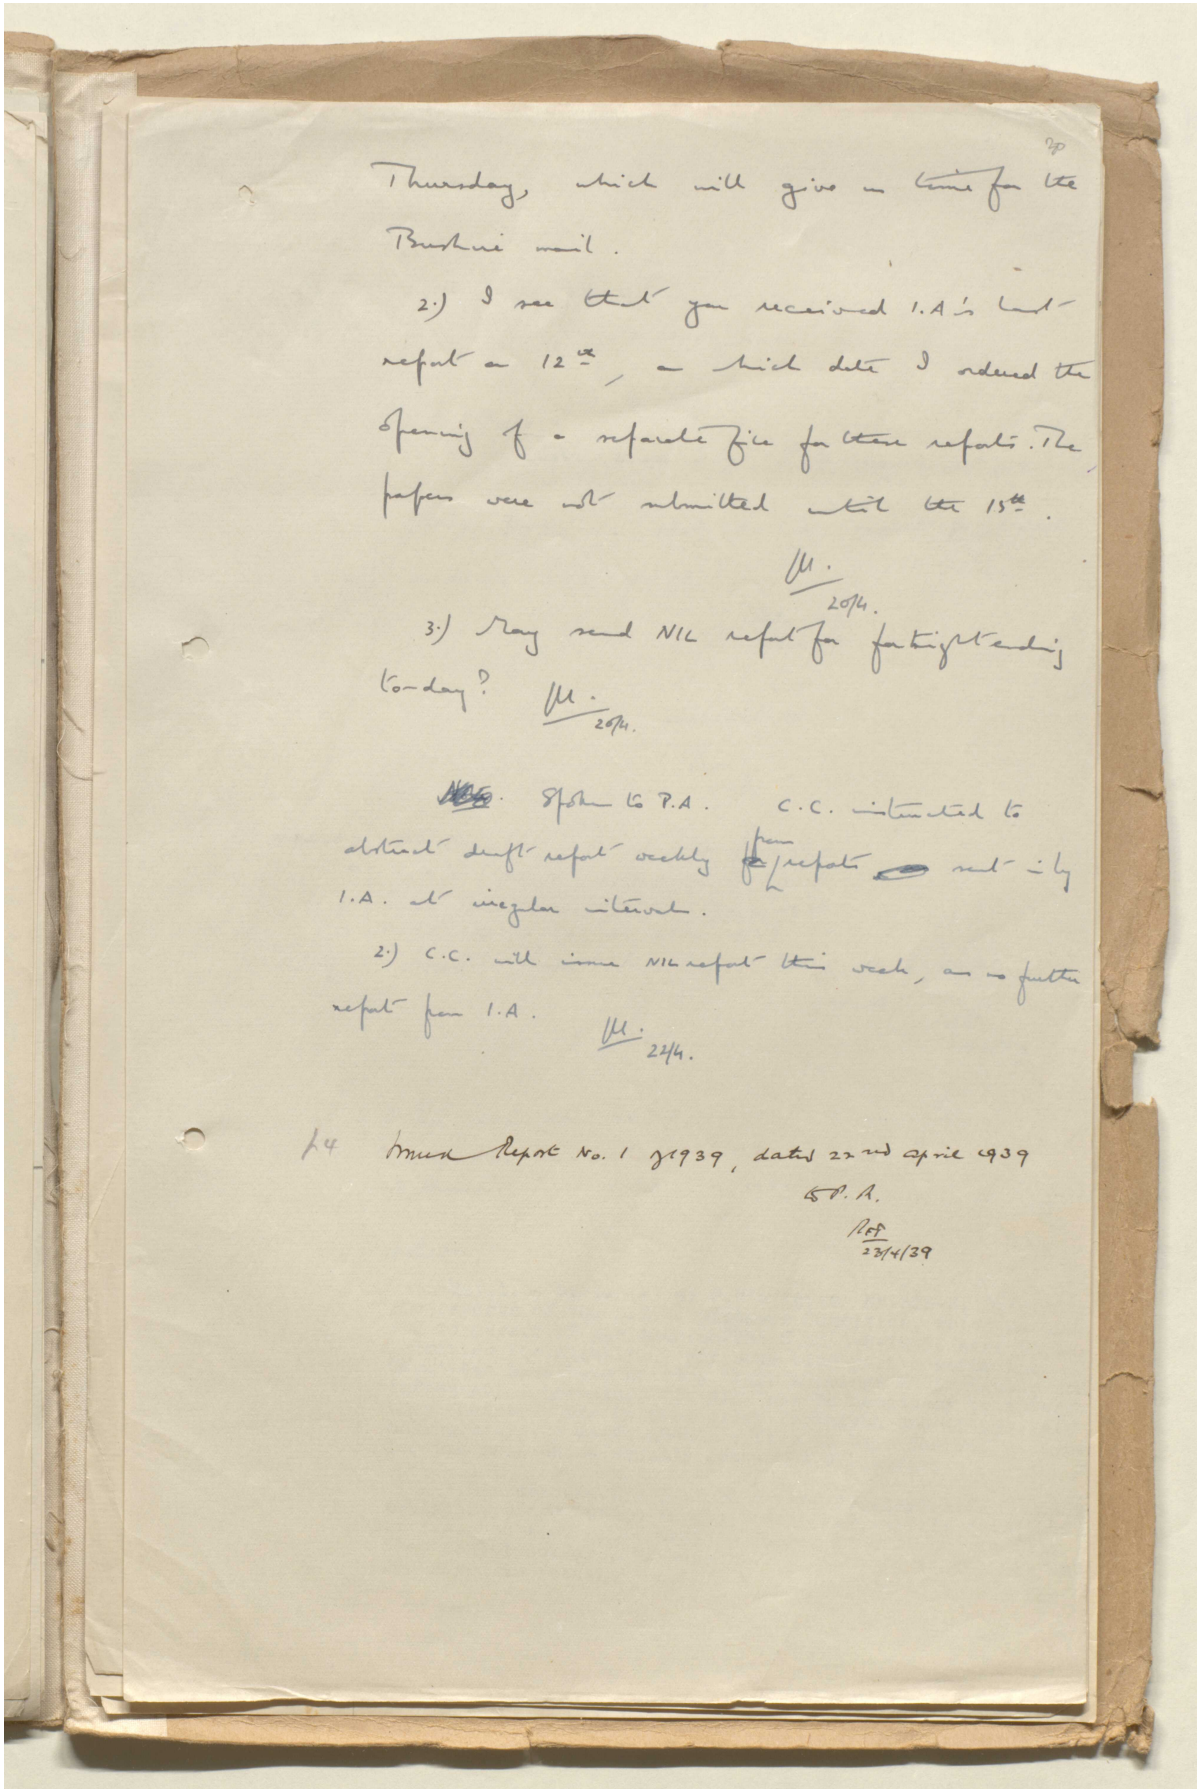 30
Thursday, which will give us time for the
Bushire mail.
2.) I see that you received I.A's last
report on 12th, on which date I ordered the
opening of a separate file for these reports. The
papers were not submitted until the 15th.
20/4.
3.) May send NIL report for fortnight ending
to-day?
20/4.
Spoken to P.A. C.C. instructed to
abstract draft report weekly from reports sent in by
I.A. at irregular intervals.
2.) C.C. will issue NIL report this week, as no further
report from I.A.
22/4.
f4 Issued Report No. 1 of 1939, dated 22nd April 1939
to P.R.
23/4/39